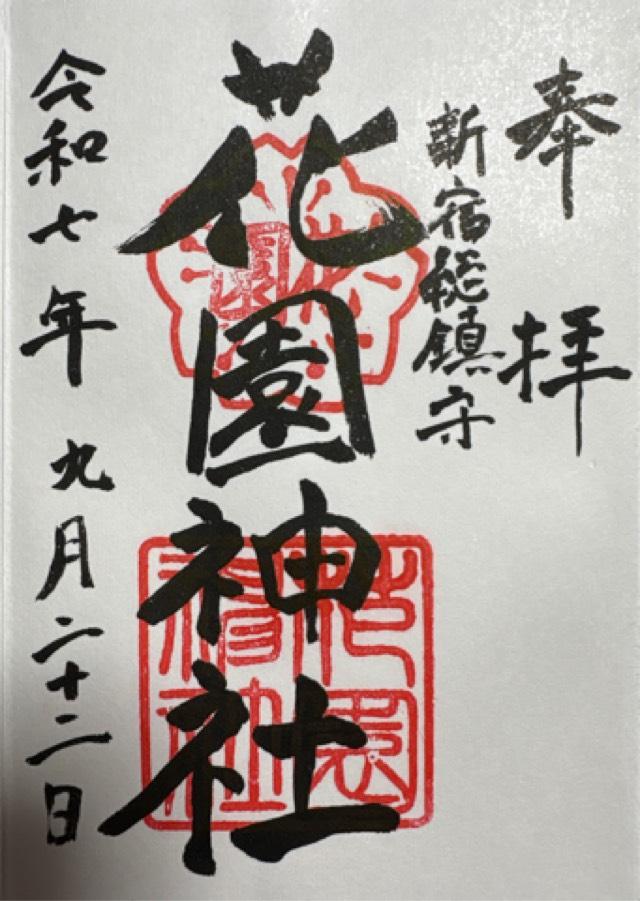 奉拝
新宿総鎮守
花園神社
令和七年 九月二十二日
花園神社